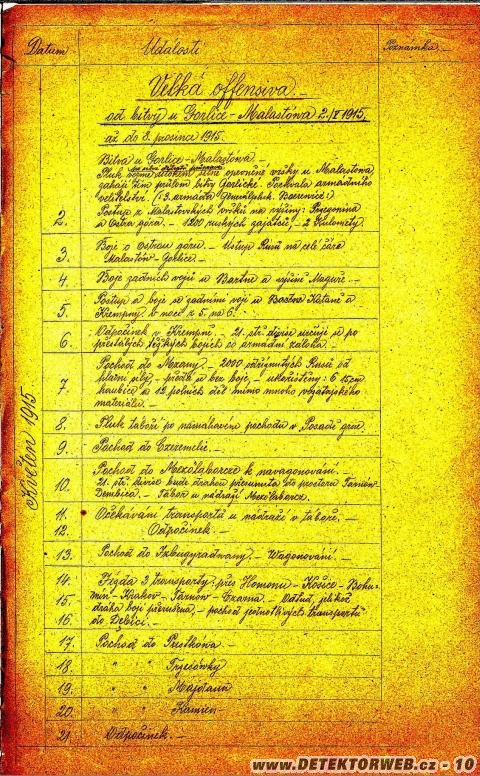 Datum Události Poznámka.
Velká offensiva.
od bitvy u Gorlice-Malastówa 2./V 1915,
až do 8. prosince 1915.
Květen 1915
Bitva u Gorlice-Malastowa
Pluk útokem silně opevněné vršky u Malastówa,
zahájí tím průlom bitvy Gorlické. Pochvala armádního
velitelství. (3. armáda
2. Postup z Malastowských vrchů na výšiny: Przegonina
a Ostra góra. - 1200 ruských zajatců, - 2 kulomety.
3. Boje o Ostrou góru. - Ústup Rusů na celé čáře
Malastów-Gorlice. -
4. Boje zadních vojů u Bartne a výšiny Magury. -
5. Postup a boje se zadními voji u Bartne Kotaně a
Krempny, v noci z 5. na 6.
6. Odpočinek v Krempně. - 21. stř. divise určuje se po
přestálých těžkých bojích co armádní záloha. -
7. Pochod do Mszany. - 2000 odříznutých Rusů od
hlavní síly, - předá se bez boje, - ukořistěny: 6 15cm
haubice a 12 polních děl mimo mnoho vojenského
materiálu. -
8. Pluk táboří po namáhavém pochodu v Posadě grne.
9. Pochod do Czeremchi. -
10. Pochod do Mezölaborcze k navagonování. -
21. stř. divise bude drahou přesunuta do prostoru Tarnów
Dembica. - Tábor u nádraží Mezölaborcz.
11. Očekávání transportů u nádraží v táboře. -
12. Odpočinek. -
13. Pochod do Izbugyradvany. - Wagonování. -
14. Jízda 3 transporty: přes Homonu - Košice - Bohu-
15. mín - Krakov - Tarnów - Czarna. - Odtud, jelikož
dráha boji přerušena, - pochod jednotlivých transportů
16. do Debici. -
17. Pochod do Pustkówa.
18. " " Trzesówky
19. " " Majdanu
20. " " Kamien
21. Odpočinek. -
www.DETEKTORWEB.cz - 10